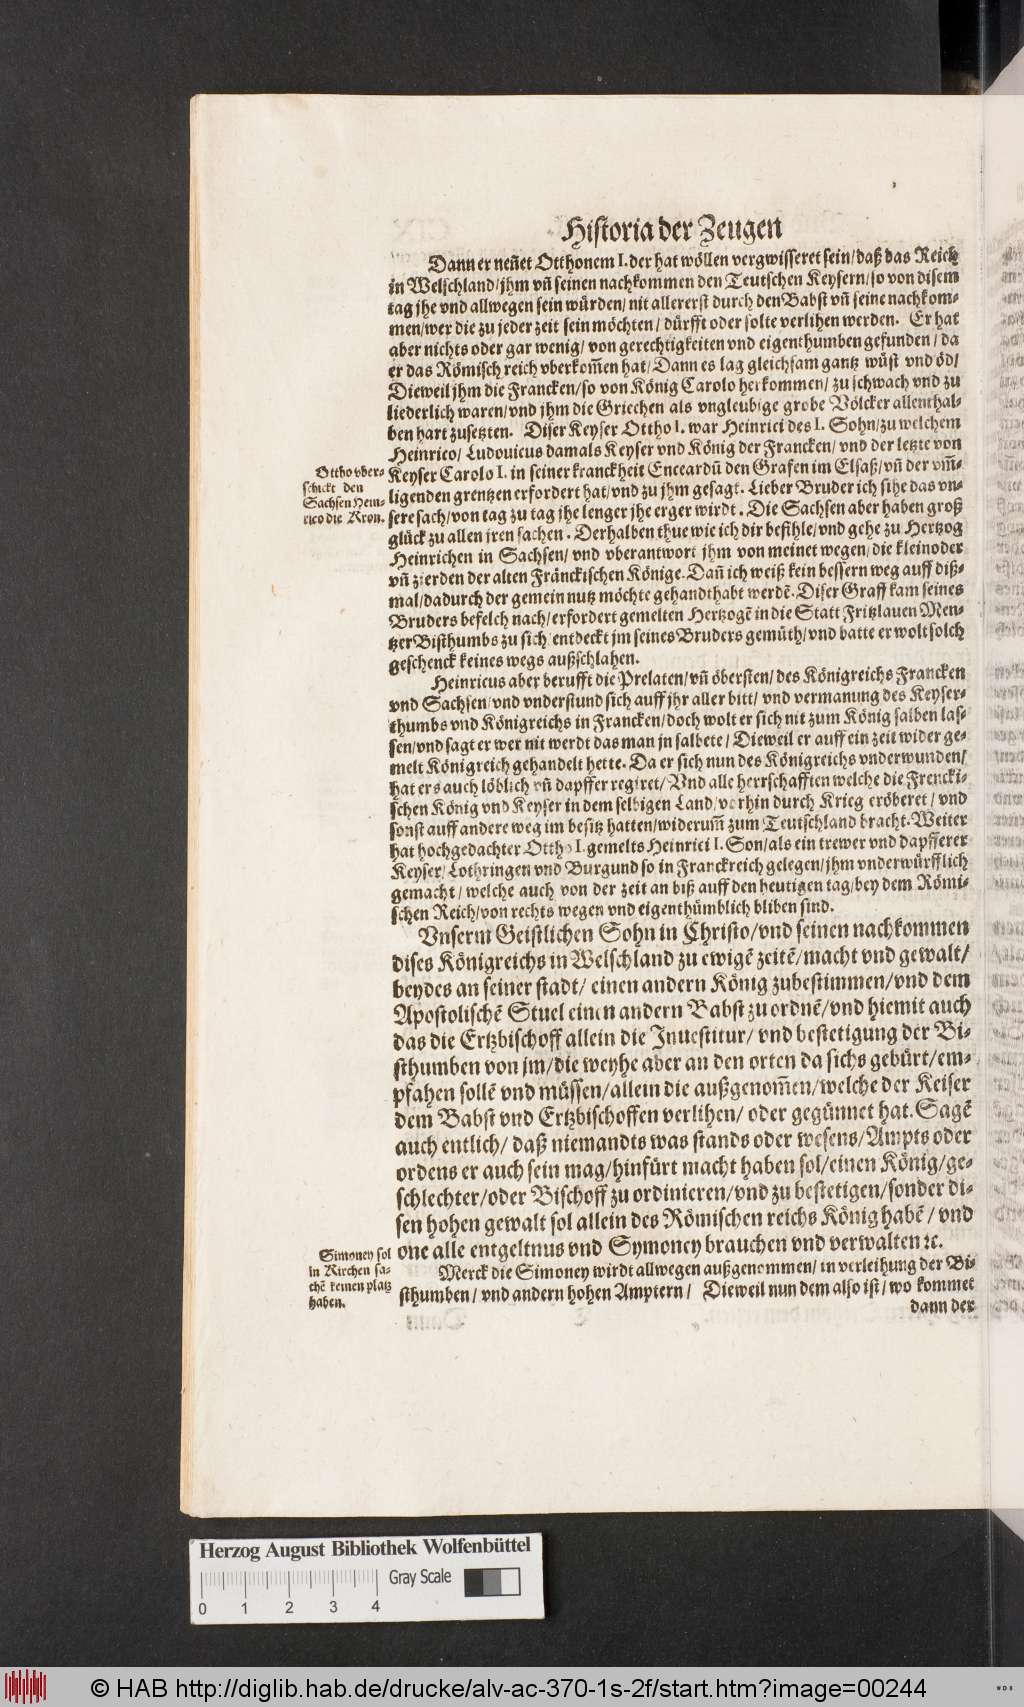 Historia der Zeugen
Dann er neñet Otthonem I. der hat wöllen vergwisseret sein/daß das Reich
in Welschland/jhm vñ seinen nachkommen den Teutschen Keysern/so von disem
tag jhe vnd allwegen sein würden/nit allererst durch den Babst vñ seine nachkom-
men/wer die zu jeder zeit sein möchten/dürfft oder solte verlihen werden. Er hat
aber nichts oder gar wenig/von gerechtigkeiten vnd eigenthumben gefunden/da
er das Römisch reich vberkom̃en hat/Dann es lag gleichsam gantz wüst vnd öd/
Dieweil jhm die Francken/so von König Carolo herkommen/zu schwach vnd zu
liederlich waren/vnd jhm die Griechen als vngleubige grobe Völcker allenthal-
ben hart zusetzten. Diser Keyser Ottho I. war Heinrici des I. Sohn/zu welchem
Heinrico/Ludouicus damals Keyser vnd König der Francken/vnd der letzte von
Keyser Carolo I. in seiner kranckheit Enceardũ den Grafen im Elsaß/vñ der vm̃-
ligenden grentzen erfordert hat/vnd zu jhm gesagt. Lieber Bruder ich sihe das vn-
sere sach/von tag zu tag jhe lenger jhe erger wirdt. Die Sachsen aber haben groß
glück zu allen jren sachen. Derhalben thue wie ich dir befihle/vnd gehe zu Hertzog
Heinrichen in Sachsen/vnd vberantwort jhm von meinet wegen/die kleinoder
vñ zierden der alten Fränckischen Könige. Dañ ich weiß kein bessern weg auff diß-
mal/dadurch der gemein nutz möchte gehandthabt werdẽ. Diser Graff kam seines
Bruders befelch nach/erfordert gemelten Hertzogẽ in die Statt Fritzlauen Men-
tzer Bisthumbs zu sich entdeckt jm seines Bruders gemüth/vnd batte er wolt solch
geschenck keines wegs außschlahen.
Heinricus aber berufft die Prelaten/vñ öbersten/des Königreichs Francken
vnd Sachsen/vnd vnderstund sich auff jhr aller bitt/vnd vermanung des Keyser-
thumbs vnd Königreichs in Francken/doch wolt er sich nit zum König salben las-
sen/vnd sagt er wer nit werdt das man jn salbete/Dieweil er auff ein zeit wider ge-
melt Königreich gehandelt hette. Da er sich nun des Königreichs vnderwunden/
hat ers auch löblich vñ dapffer regiret/Vnd alle herrschafften welche die Frencki-
schen König vnd Keyser in dem selbigen Land/vorhin durch Krieg eröberet/vnd
sonst auff andere weg im besitz hatten/widerum̃ zum Teutschland bracht. Weiter
hat hochgedachter Ottho I. gemelts Heinrici I. Son/als ein trewer vnd dapfferer
Keyser/Lothringen vnd Burgund so in Franckreich gelegen/jhm vnderwürfflich
gemacht/welche auch von der zeit an biß auff den heutigen tag/bey dem Römi-
schen Reich/von rechts wegen vnd eigenthümblich bliben sind.
Vnserm Geistlichen Sohn in Christo/vnd seinen nachkommen
dises Königreichs in Welschland zu ewigẽ zeitẽ/macht vnd gewalt/
beydes an seiner stadt/einen andern König zubestimmen/vnd dem
Apostolischẽ Stuel einen andern Babst zu ordnẽ/vnd hiemit auch
das die Ertzbischoff allein die Inuestitur/vnd bestetigung der Bi-
sthumben von jm/die weyhe aber an den orten da sichs gebürt/em-
pfahen sollẽ vnd müssen/allein die außgenom̃en/welche der Keiser
dem Babst vnd Ertzbischoffen verlihen/oder gegünnet hat. Sagẽ
auch entlich/daß niemandts was stands oder wesens/Ampts oder
ordens er auch sein mag/hinfürt macht haben sol/einen König/ge-
schlechter/oder Bischoff zu ordinieren/vnd zu bestetigen/sonder di-
sen hohen gewalt sol allein des Römischen reichs König habẽ/vnd
one alle entgeltnus vnd Symoney brauchen vnd verwalten ꝛc.
Merck die Simoney wirdt allwegen außgenommen/in verleihung der Bi-
sthumben/vnd andern hohen Amptern/Dieweil nun dem also ist/wo kommet
dann der
Ottho vber-
schickt den
Sachsen Hein-
rico die Kron.
Simoney sol
in Kirchen sa-
chẽ keinen platz
haben.
Herzog August Bibliothek Wolfenbüttel
Gray Scale
0 1 2 3 4
© HAB http://diglib.hab.de/drucke/alv-ac-370-1s-2f/start.htm?image=00244